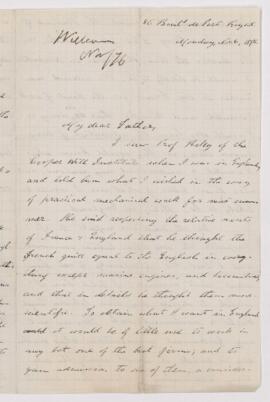 86 Boul.d de Port Royal
Monday, Nov. 6, 1876
William
Nov/76
My dear Father,
I saw Prof. of the
Institute when I was in England,
and told him what I wished in the way
of practical mechanical work for next summer
. He said respecting the relative merits
of France & England that he thought the
French quite equal to the English in every
thing except marine engines, and locomotives,
and that in details he thought them more
scientific. To obtain what I want in England
it would be of little use to work in
any but one of the best firms, and to
gain admission to one of them, a consider-